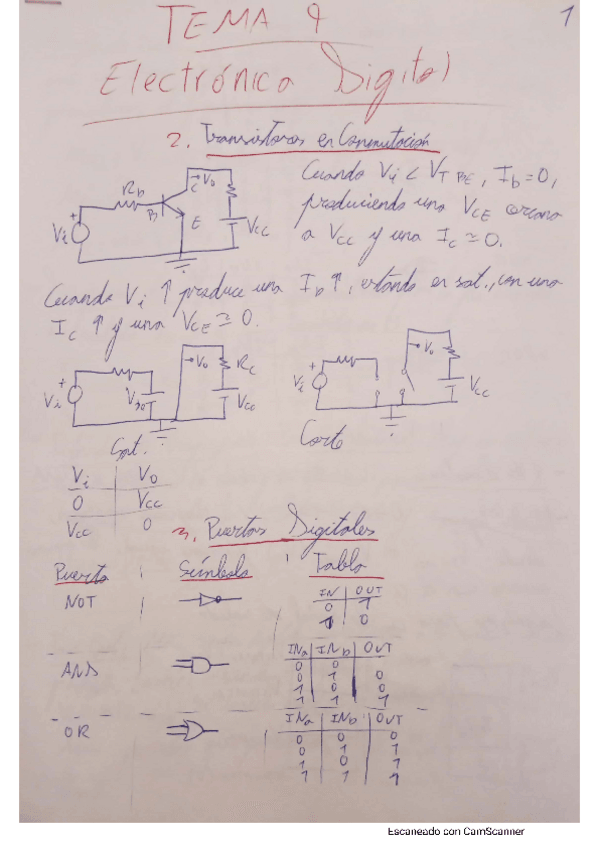 1
TEMA 9
Electrónica Digital
2. Transistores en Conmutación
Cuando Vi < VT BE, Ib = 0,
produciendo una VCE cercana
a VCC y una Ic ≅ 0.
Rb
B
C
E
Vo
Vi
+
VCC
Cuando Vi ↑ produce una Ib ↑, estando en sat., con una
Ic ↑ y una VCE ≅ 0.
+
Vi
Vo
RC
VCC
+
Vi
Vo
VCC
Sat.
Corte
Vi | Vo
0 | VCC
VCC | 0
3. Puertas Digitales
Puerta Símbolo Tabla
NOT
IN | OUT
0 | 1
1 | 0
AND
INa | INb | OUT
0 0
0 1 0
1 0 0
1 1 1
OR
INa | INb | OUT
0 0 0
0 1 1
1 0 1
1 1 1
Escaneado con CamScanner